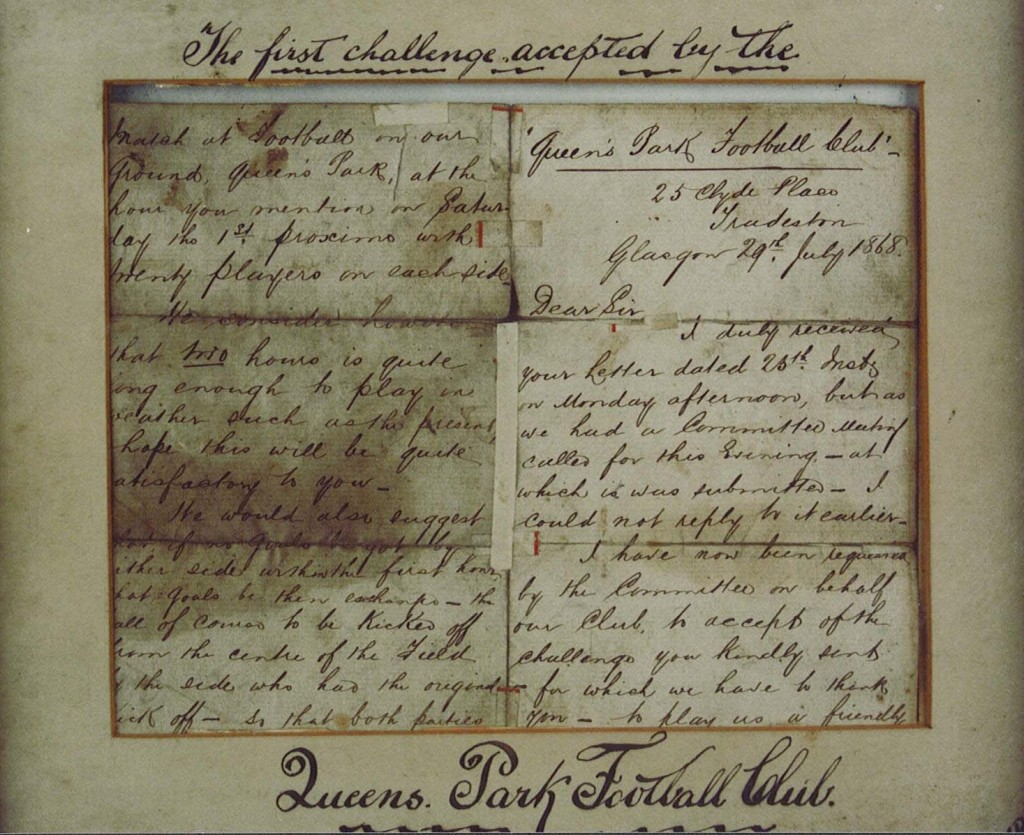 The first challenge accepted by the
"Queen's Park Football Club"-
25 Clyde Place
Tradeston
Glasgow 29th July 1868.
Dear Sir
I duly received
your letter dated 25th Inst
on Monday afternoon, but as
we had a Committee Meeting
called for this Evening - at
which is was submitted - I
could not reply to it earlier-
I have now been requested
by the Committee on behalf
our Club, to accept of the
challenge you kindly sent
- for which we have to thank
you - to play us a friendly
Match at Football on our
Ground, Queen's Park, at the
hour you mention on Satur-
day the 1st proximo with
twenty players on each side
We consider however
that two hours is quite
long enough to play in
weather such as the present
hope this will be quite
satisfactory to you -
We would also suggest
that if no Goals be got by
either side within the first hour
that goals be then exchange - the
ball of course to be Kicked off
from the centre of the Field
by the side who had the original
kick off - so that both parties
Queens. Park Football Club.